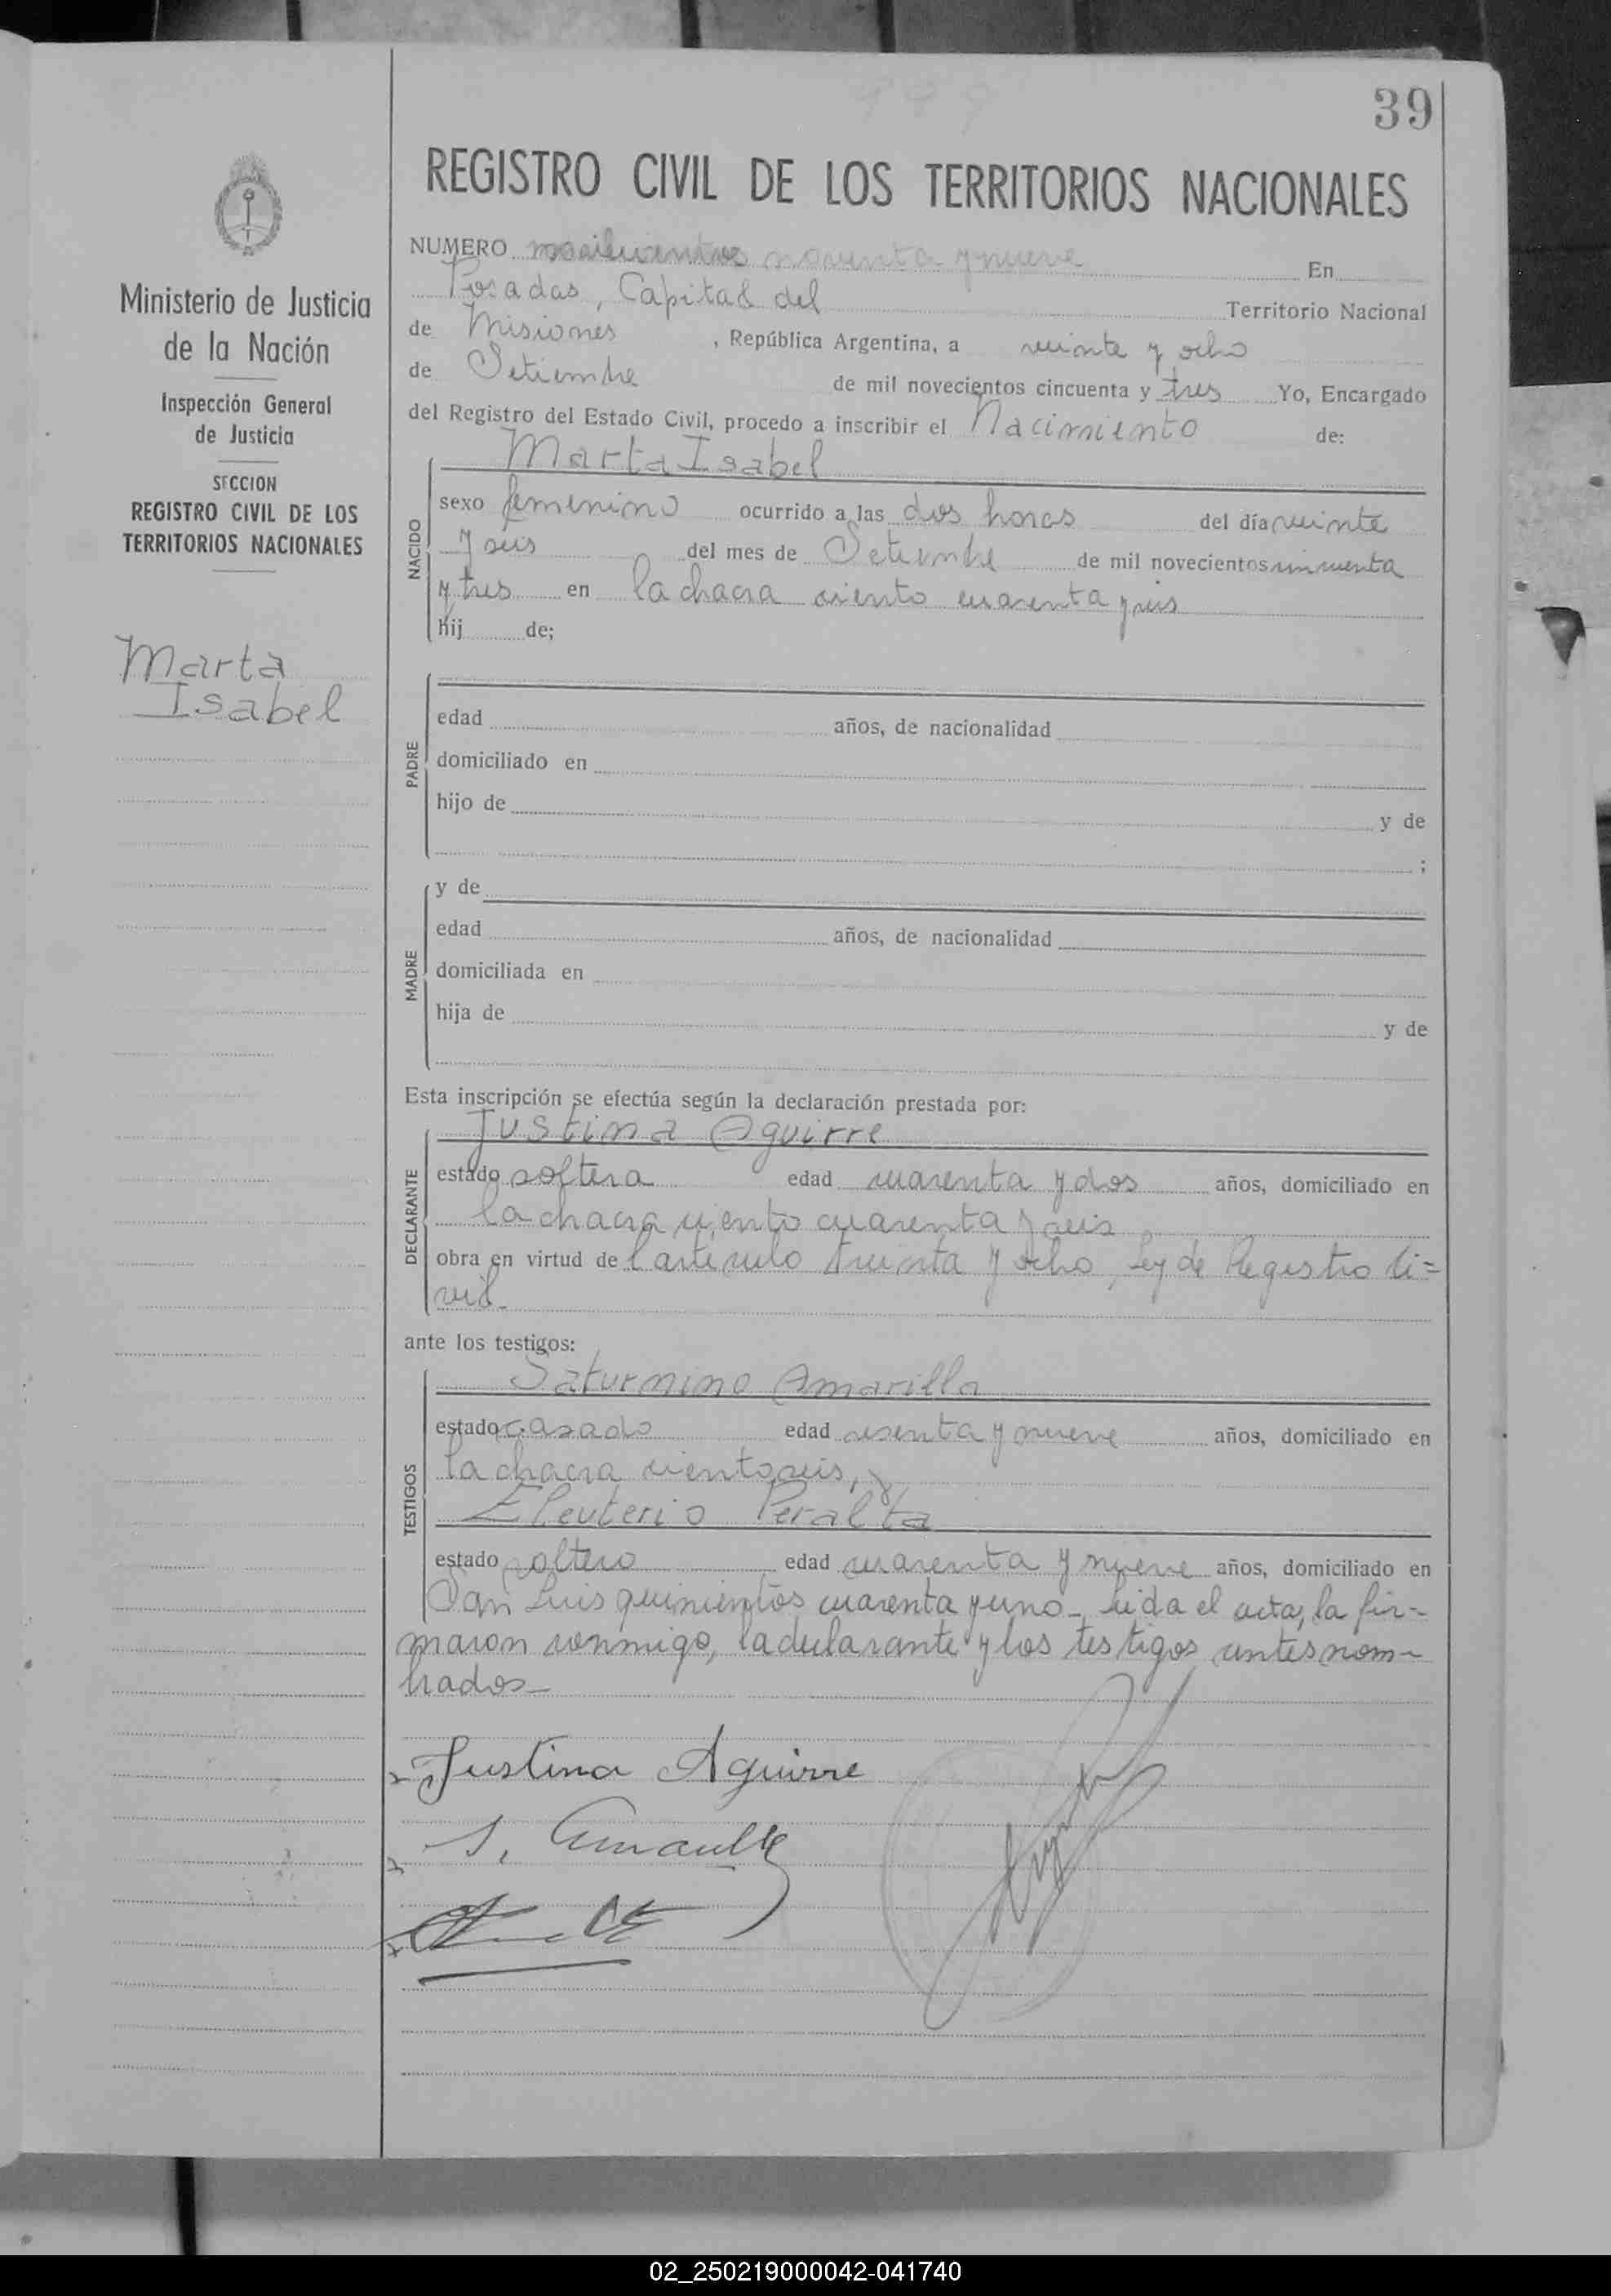 39
REGISTRO CIVIL DE LOS TERRITORIOS NACIONALES
NUMERO noventa y nueve En
Posadas, Capital del Territorio Nacional
de Misiones, República Argentina, a veinte y ocho
de Setiembre de mil novecientos cincuenta y tres Yo, Encargado
del Registro del Estado Civil, procedo a inscribir el Nacimiento de:
Ministerio de Justicia
de la Nación
Inspección General
de Justicia
SECCION
REGISTRO CIVIL DE LOS
TERRITORIOS NACIONALES
Marta
Isabel
NACIDO
Marta Isabel
sexo femenino ocurrido a las dos horas del día veinte
y seis del mes de Setiembre de mil novecientos cincuenta
y tres en la chacra ciento cuarenta y seis
hij de;
PADRE
edad años, de nacionalidad
domiciliado en
hijo de y de
;
MADRE
y de
edad años, de nacionalidad
domiciliada en
hija de y de
Esta inscripción se efectúa según la declaración prestada por:
DECLARANTE
Justina Aguirre
estado soltera edad cuarenta y dos años, domiciliado en
la chacra ciento cuarenta y seis
obra en virtud de l artículo treinta y ocho, Ley de Registro Ci=
vil-
ante los testigos:
TESTIGOS
Saturnino Amarilla
estado casado edad sesenta y nueve años, domiciliado en
la chacra ciento seis, y
Eleuterio Peralta
estado soltero edad cuarenta y nueve años, domiciliado en
San Luis quinientos cuarenta y uno- Leida el acta, la fir=
maron conmigo, la declarante y los testigos antes nom-
brados-
Justina Aguirre
S. Amarilla
02_250219000042-041740